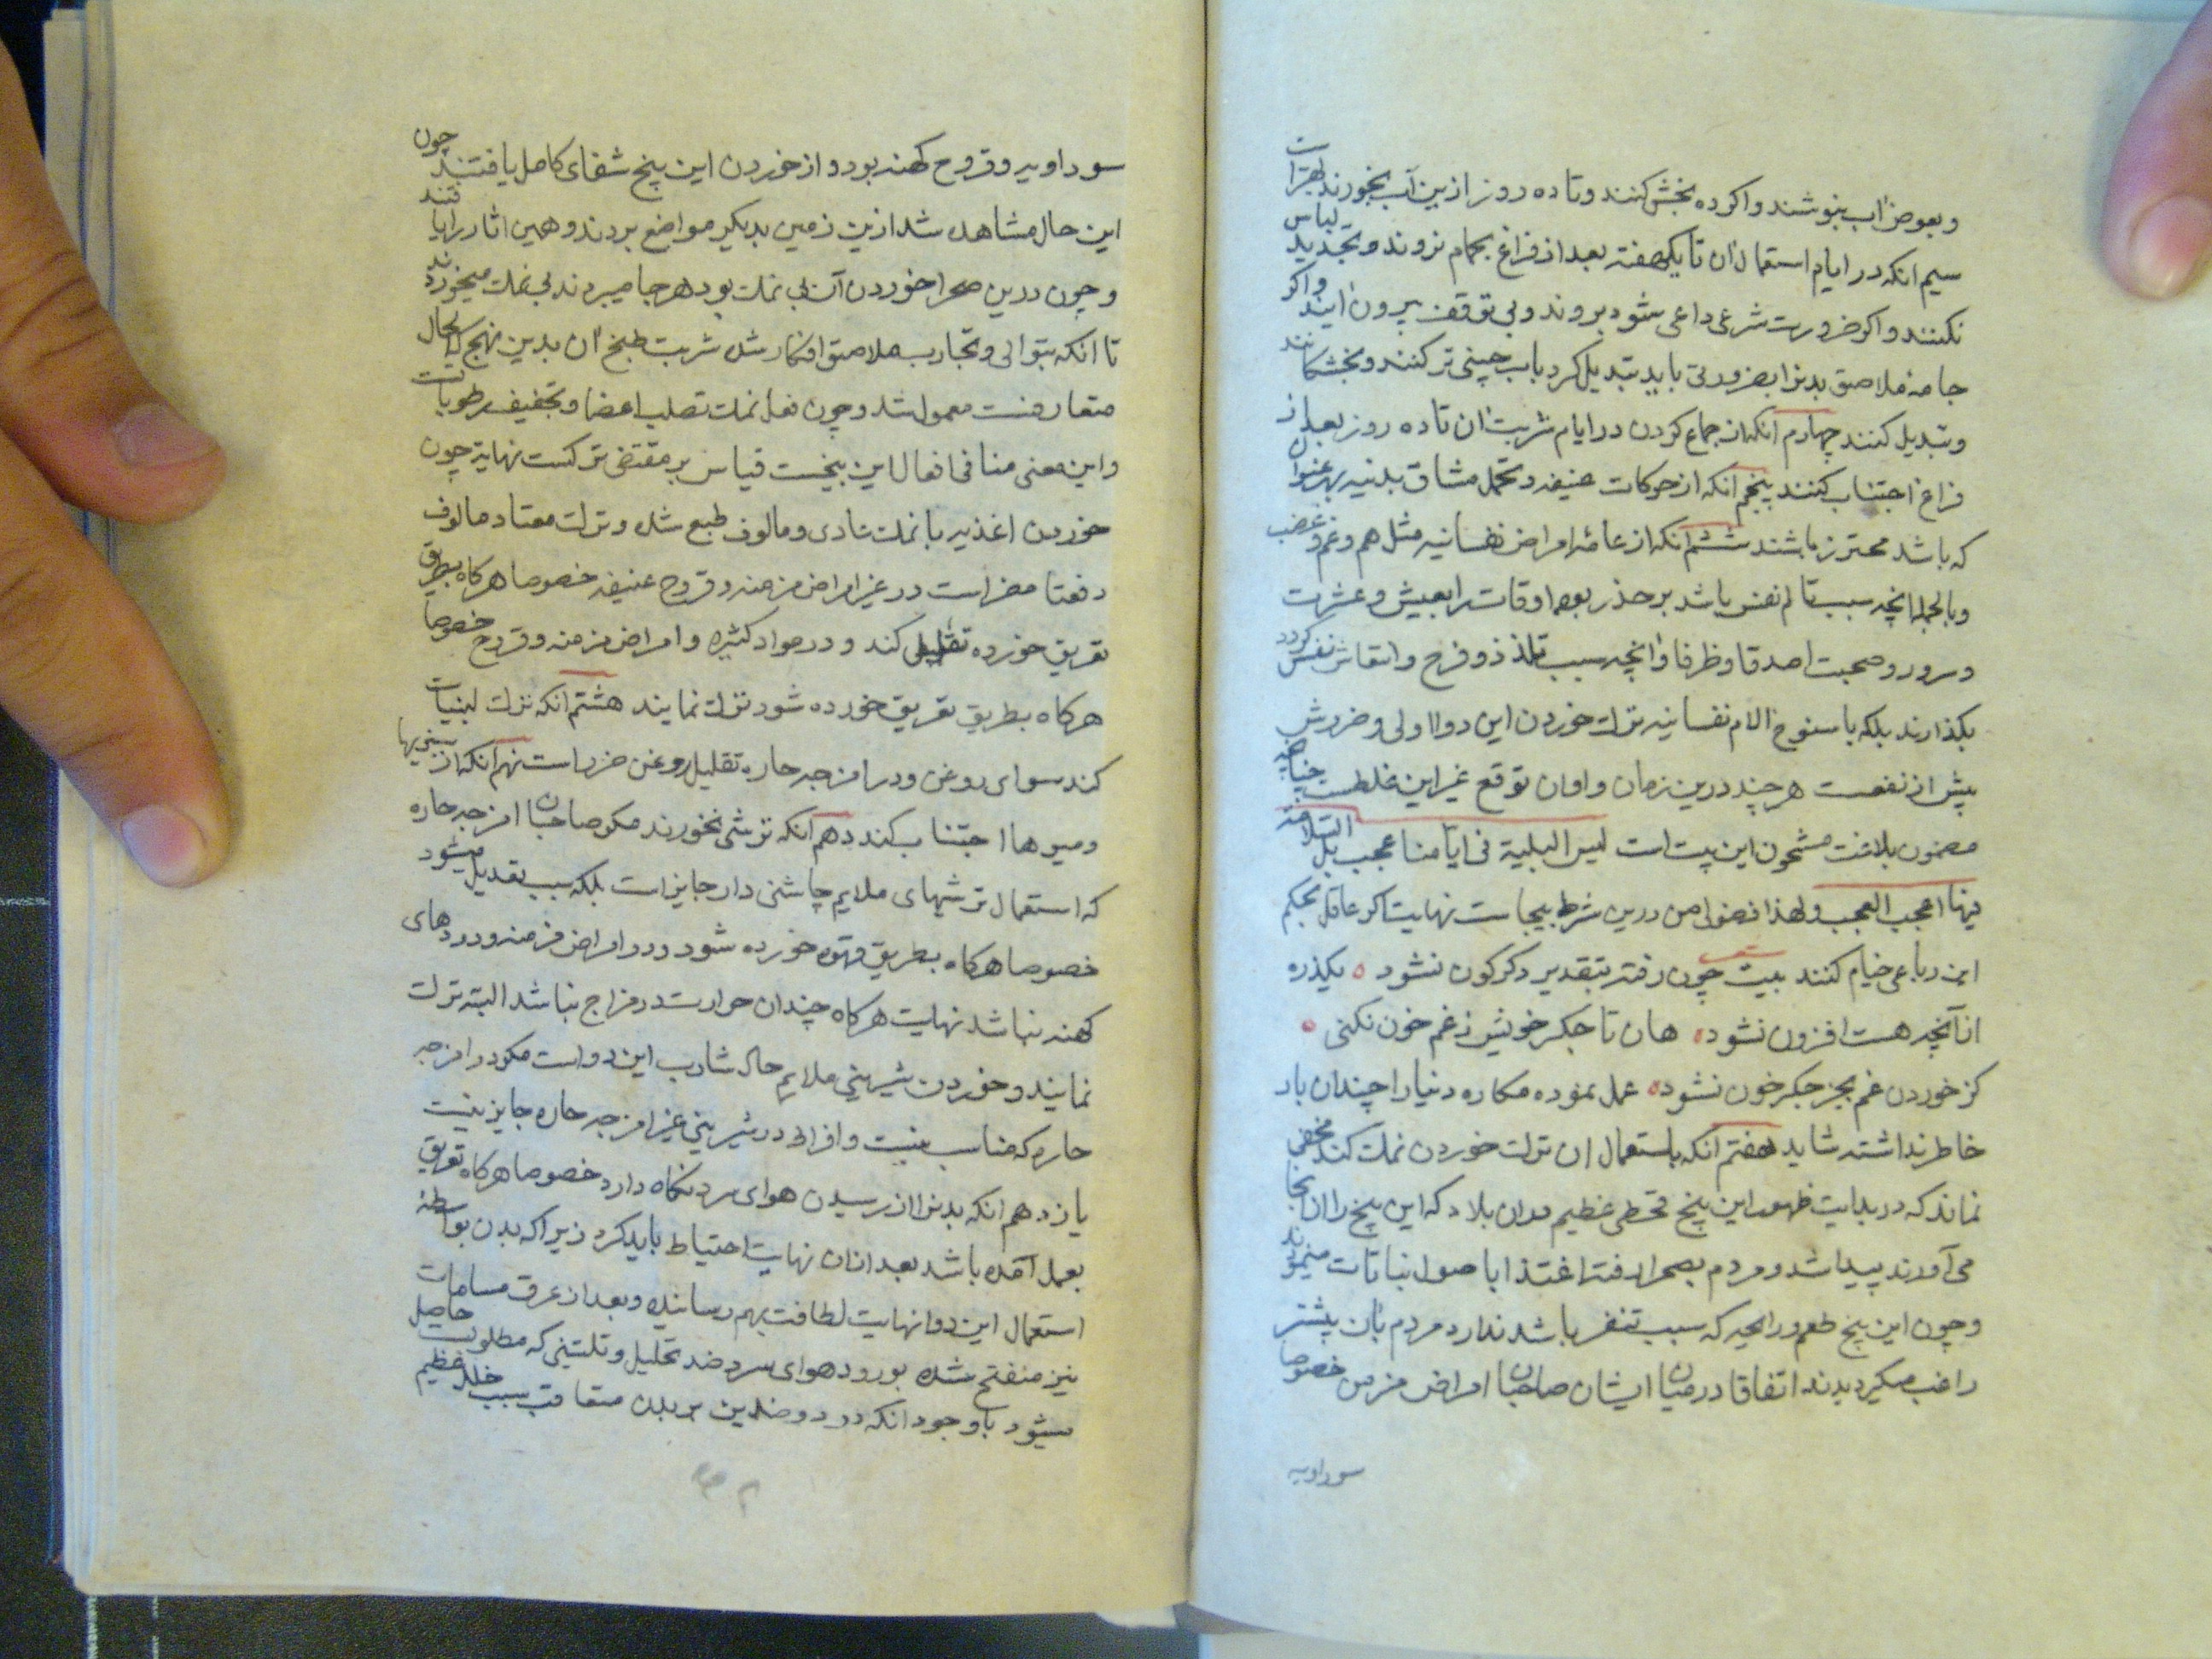 و بعوض آب بنوشند و اکر ده بخش کنند و تا ده روز ازین آب بخورند بهتر است
سیم انکه در ایام استعمال ان تا یکهفته بعد از فراغ بحمام نروند و تجدید لباس
نکنند و اکر ضرورت شرعی داعی شود بروند و بی توقف بیرون ایند و اکر
جامۀ ملاصق بدنرا بضرورتی باید تبدیل کرد باب چینی تر کنند و بخشکانند
و تبدیل کنند چهارم انکه از جماع کردن در ایام شربت ان تا ده روز بعد از
فراغ اجتناب کنند پنجم انکه از حرکات عنیفه و تحمل مشاق بدنیه بهر عنوان
که باشد محترز باشند ششم انکه از عامۀ امراض نفسانیه مثل هم و غم و غضب
و بالجمله انچه سبب تالم نفس باشد بر حذر بوده اوقات را بعیش و عشرت
و سرور و صحبت اصدقا و ظرفا و انچه سبب تلذذ و فرح و انتعاش نفس کردد
بکذارند بلکه با سنوح الام نفسانیه ترک خوردن این دوا اولی و ضررش
بیش از نفعست هر چند درین زمان و اوان توقع غیر این غلطست چنانچه
مضمون بلاغت مشحون این بیت است لیس البلیة فی ایامنا عجب بل السلامة
فیها اعجب العجب و لهذا فضولی من درین شرط بیجاست نهایت اکر عاقل بحکم
این رباعی خیام کنند بیت چون رفته بتقدیر دکرکون نشود ه یکذره
از آنچه هست افزون نشود ه هان تا جکر خویش ز غم خون نکنی ه
کز خوردن غم بجز جکر خون نشود ه عمل نموده مکاره دنیا را چندان بار
خاطر نداشته شاید هفتم انکه باستعمال ان ترک خوردن نمک کند مخفی
نماند که در بدایت ظهور این بیخ قحطی عظیم در ان بلاد که این بیخ را از انجا
می آورند پیدا شد و مردم بصحرا رفته اغتذا باصول نباتات مینمودند
و چون این بیخ طعم و رایحه که سبب تنفر باشد ندارد مردم بان بیشتر
راغب میکردیدند اتفاقا در میان ایشان صاحبان امراض مزمن خصوصا
سوداویه
سوداویه و قروح کهنه بود و از خوردن این بیخ شفای کامل یافتند چون
این حال مشاهده شد ازین زمین بدیکر مواضع بردند و همین اثار را یافتند
و چون درین صحرا خوردن آن بی نمک بود هر جا میبردند بی نمک میخوردند
تا انکه بتوالی و تجارب ملاصق افکار شده شربت طبخ ان بدین نهج که الحال
متعارفست معمول شد و چون فعل نمک تصلب اعضا و تجفیف رطوباتست
و این معنی منافی افعال این بیخست قیاس بر مقتضی ترکست نهایة چون
خوردن اغذیه با نمک عادی و مالوف طبع شده و ترک معتاد مالوف
دفعتا مضر است در غیر امراض مزمنه و قروح عنیفه خصوصا هرکاه بطریق
تعریق خورده تقلیلی کند و در مواد کثیره و امراض مزمنه و قروح خصوصا
هرکاه بطریق تعریق خورده شود ترک نمایند هشتم انکه ترک لبنیات
کند سوای روغن و در امزجه حاره تقلیل روغن ضرر است نهم انکه از سبزیها
و میوها اجتناب کند دهم انکه ترشی نخورند مکر صاحبان امزجه حاره
که استعمال ترشیهای ملایم چاشنی دار جایز است بلکه سبب تعدیل میشود
خصوصا هرکاه بطریق قهوه خورده شود و در امراض مزمنه و دردهای
کهنه نباشد نهایت هرکاه چندان حرارت در مزاج نباشد البته ترک
نمایند و خوردن شیرینی ملایم حال شارب این دواست مکر در امزجه
حاره که مناسب نیست و افراط در شیرینی غیر امزجه حاره جایز نیست
یازدهم انکه بدنرا از رسیدن هوای سرد نکاه دارد خصوصا هرکاه تعریق
بعمل آمده باشد بعد از ان نهایت احتیاط باید کرد زیرا که بدن بواسطۀ
استعمال این دوا نهایت لطافت بهم رسانیده و بعد از عرق مسامات
نیز منفتح شده بورود هوای سرد ضد تحلیل و تلیینی که مطلوبست حاصل
میشود با وجود انکه ورود ضدین بر بدن متعاقب سبب خلل عظیم